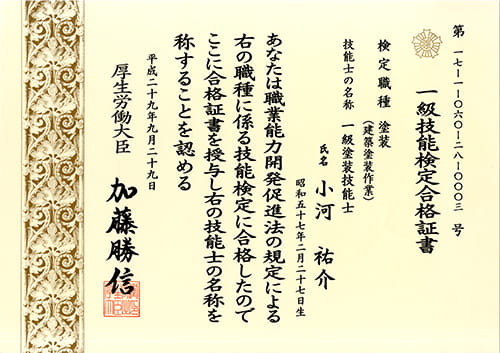 第一七―一―〇六〇―二八―〇〇〇三号
一級技能検定合格証書
検定職種 塗装
(建築塗装作業)
技能士の名称 一級塗装技能士
氏名 小河 祐介
昭和五十七年二月二十七日生
あなたは職業能力開発促進法の規定による
右の職種に係る技能検定に合格したので
ここに合格証書を授与し右の技能士の名称を
称することを認める
平成二十九年九月二十九日
厚生労働大臣 加藤勝信